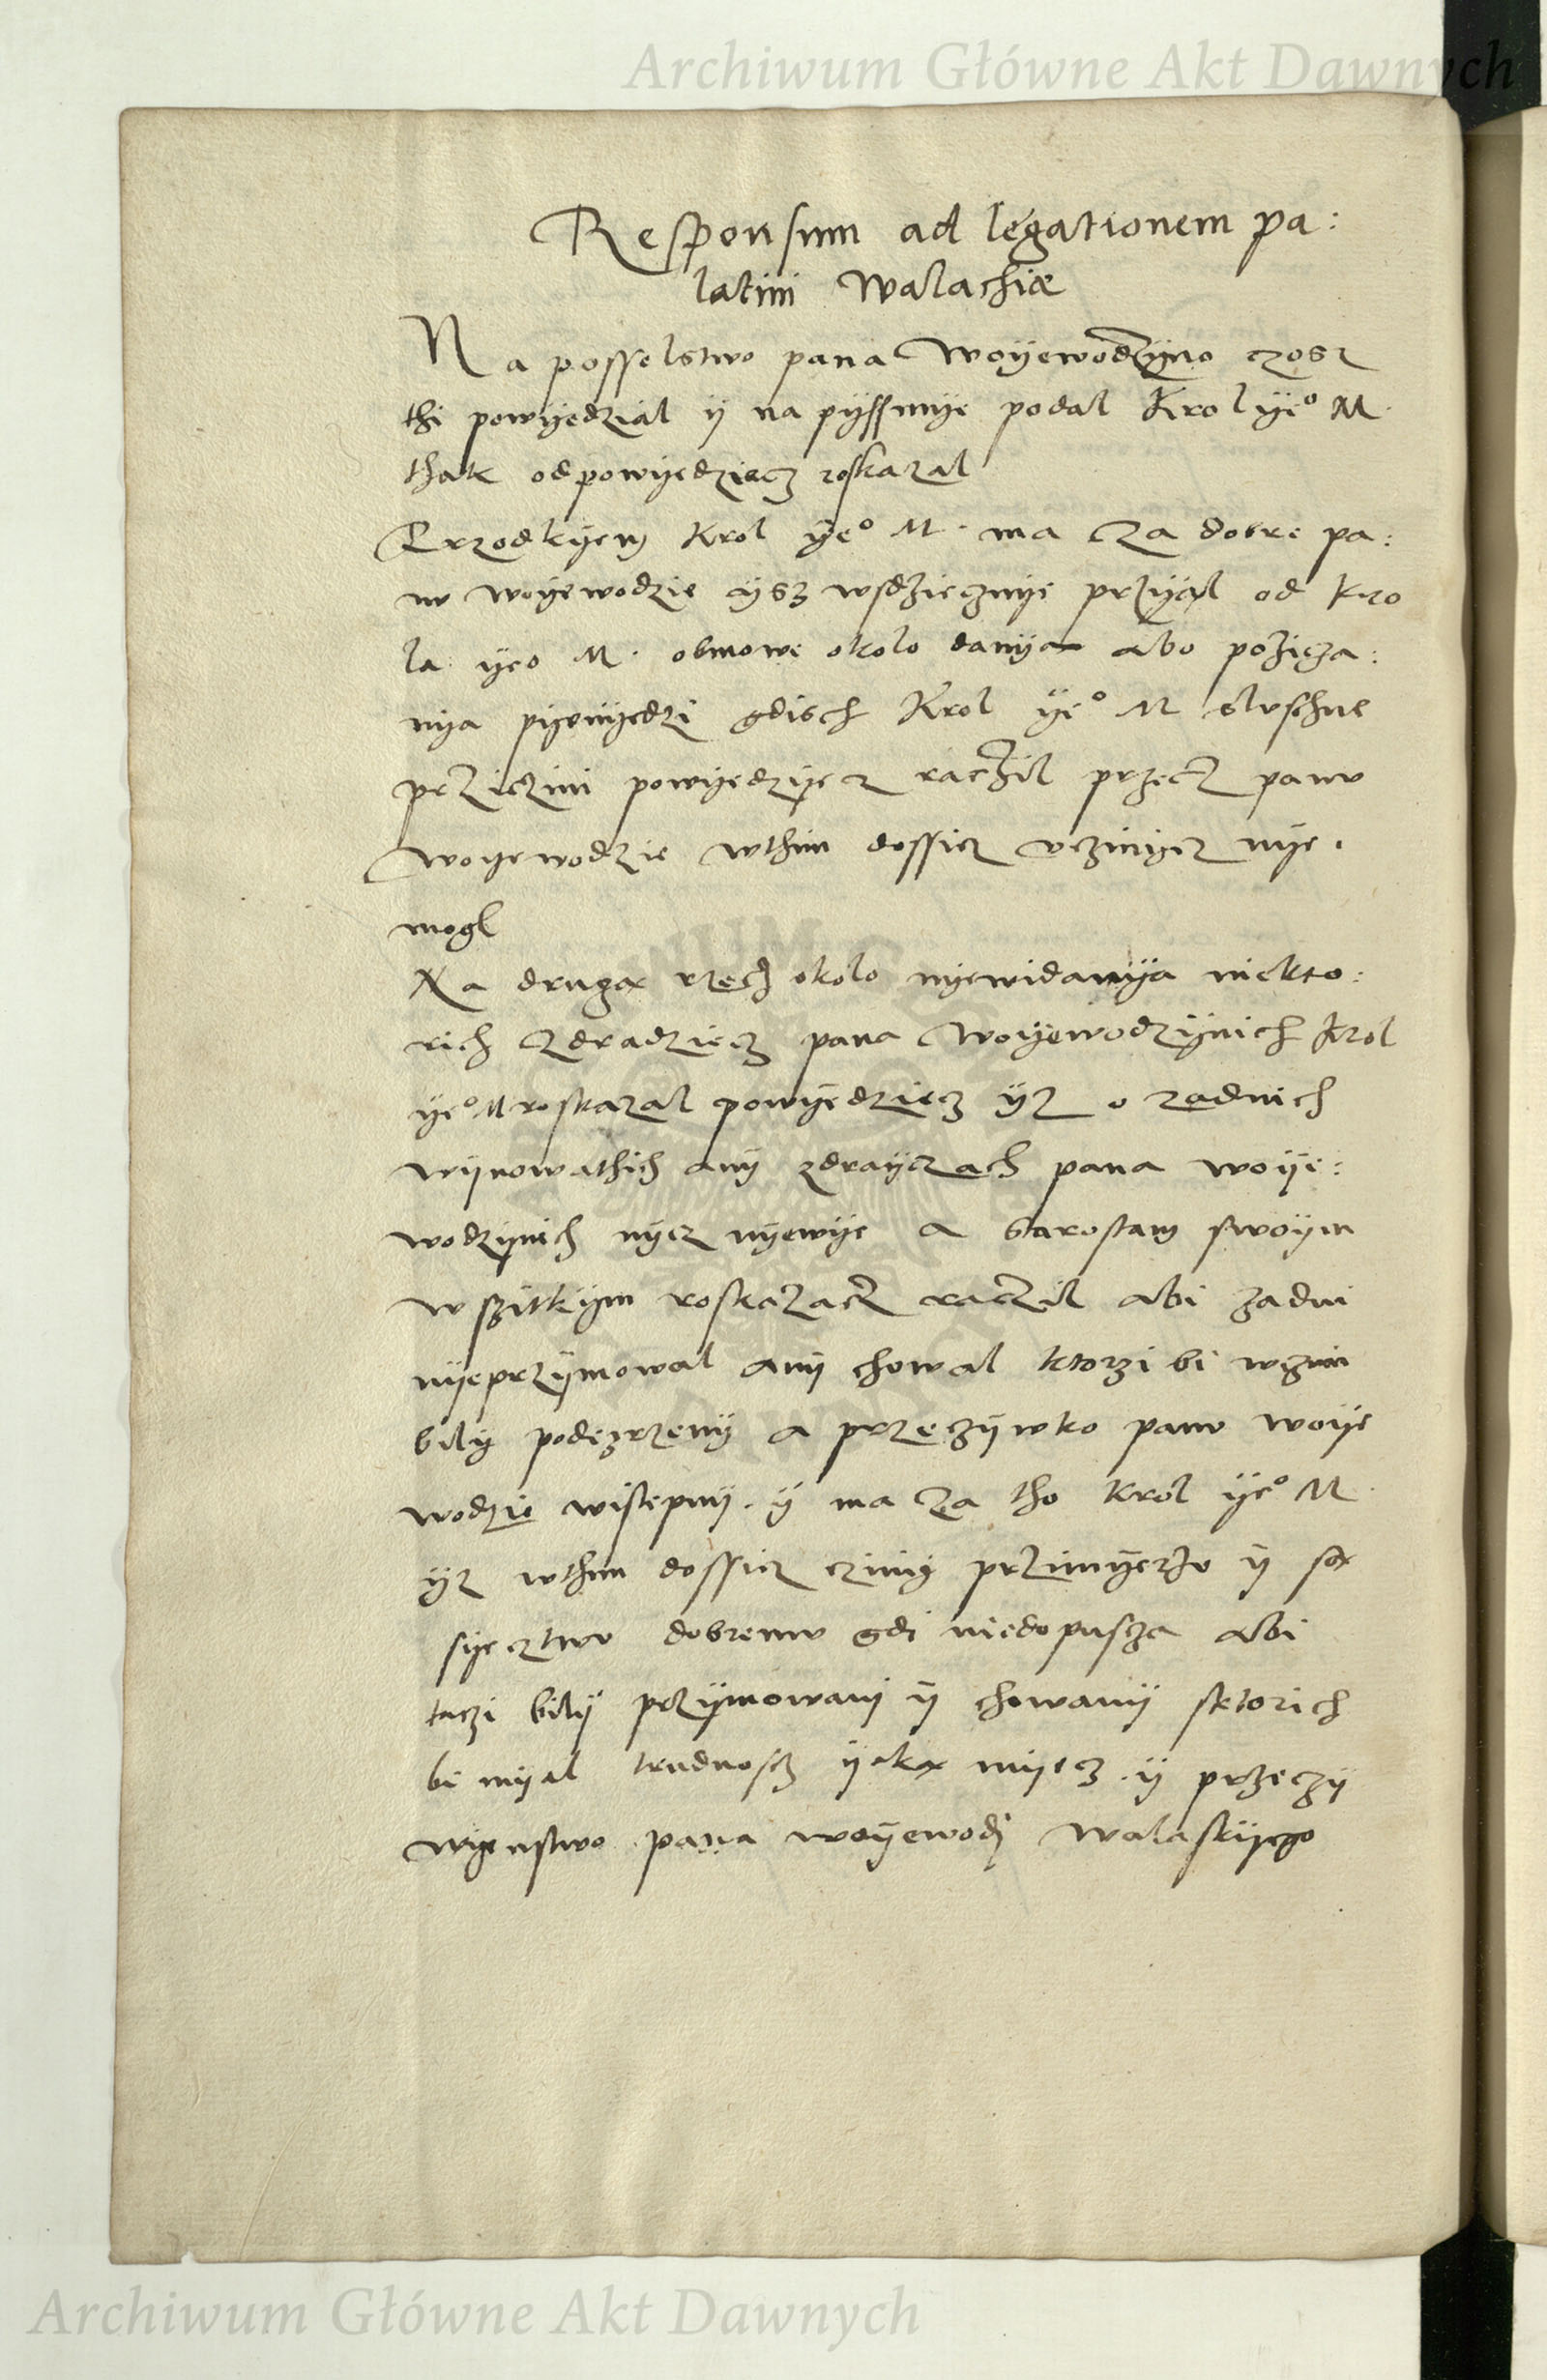 Archiwum Główne Akt Dawnych
Responsum ad legationem pa:
latini Walachiæ
Na posselstwo pana Woyewodzyno czosz
thi powyedzial y na pyssmye podal Krol yeº M.
thak odpowyedziecz roskazal
Przodkyem Krol yeº M. ma Za dobre pa:
nv woyewodzie ysz wsdziecznye przyyal od kro
la yeo M. obmowe okolo danya abo pozicza:
nya pyenyedzi gdisch Krol yeº M slvschne
prziczini powyedzyecz raczil przecz panv
woyewodzie wthim dossicz vczinycz nye.
mogl
Na druga rzecz okolo nyewidanya niekto:
rich Zdradziecz pana Woyewodzynich Krol
yeº M roskazal powyedziecz yz o zadnich
wynowathich any zdrayczach pana woye:
wodzynich nycz nyewye a starostam swoym
wszitkym roskazacz raczil abi zadni
nyeprzymowal any chowal ktorzi bi wczim
bily podezrzeny a przeczywko panv woye
wodzie wistepny. y ma Za tho Krol yeº M.
yz wthim dossicz czini przimyerzv y sa
syecztwv dobremv gdi niedopuscza abi
taczi bily przymowani y chowany sktorich
bi myal trudnoscz yaka myecz. y przeczy
wyenstwo pana woyewodi Walaskyego
Archiwum Główne Akt Dawnych